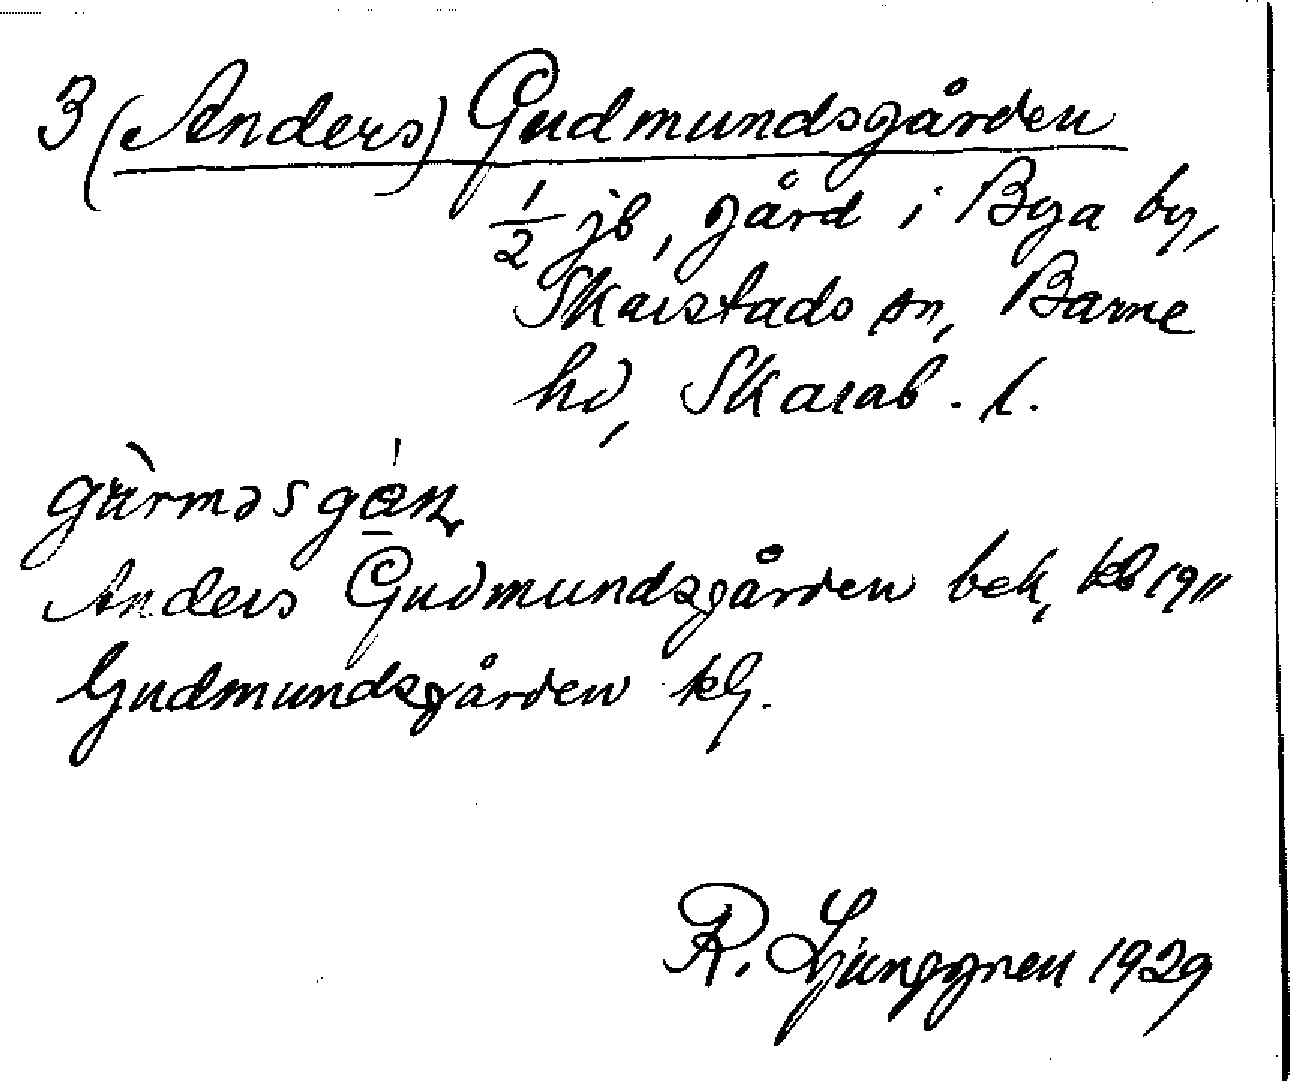 3 (Anders) Gudmundsgården
1/2 jb, gård i Bya by,
Skarstads sn, Barne
hd, Skarab. l.
Anders Gudmundsgården bek, kb 1911
Gudmundsgården kG.
R. Ljunggren 1929